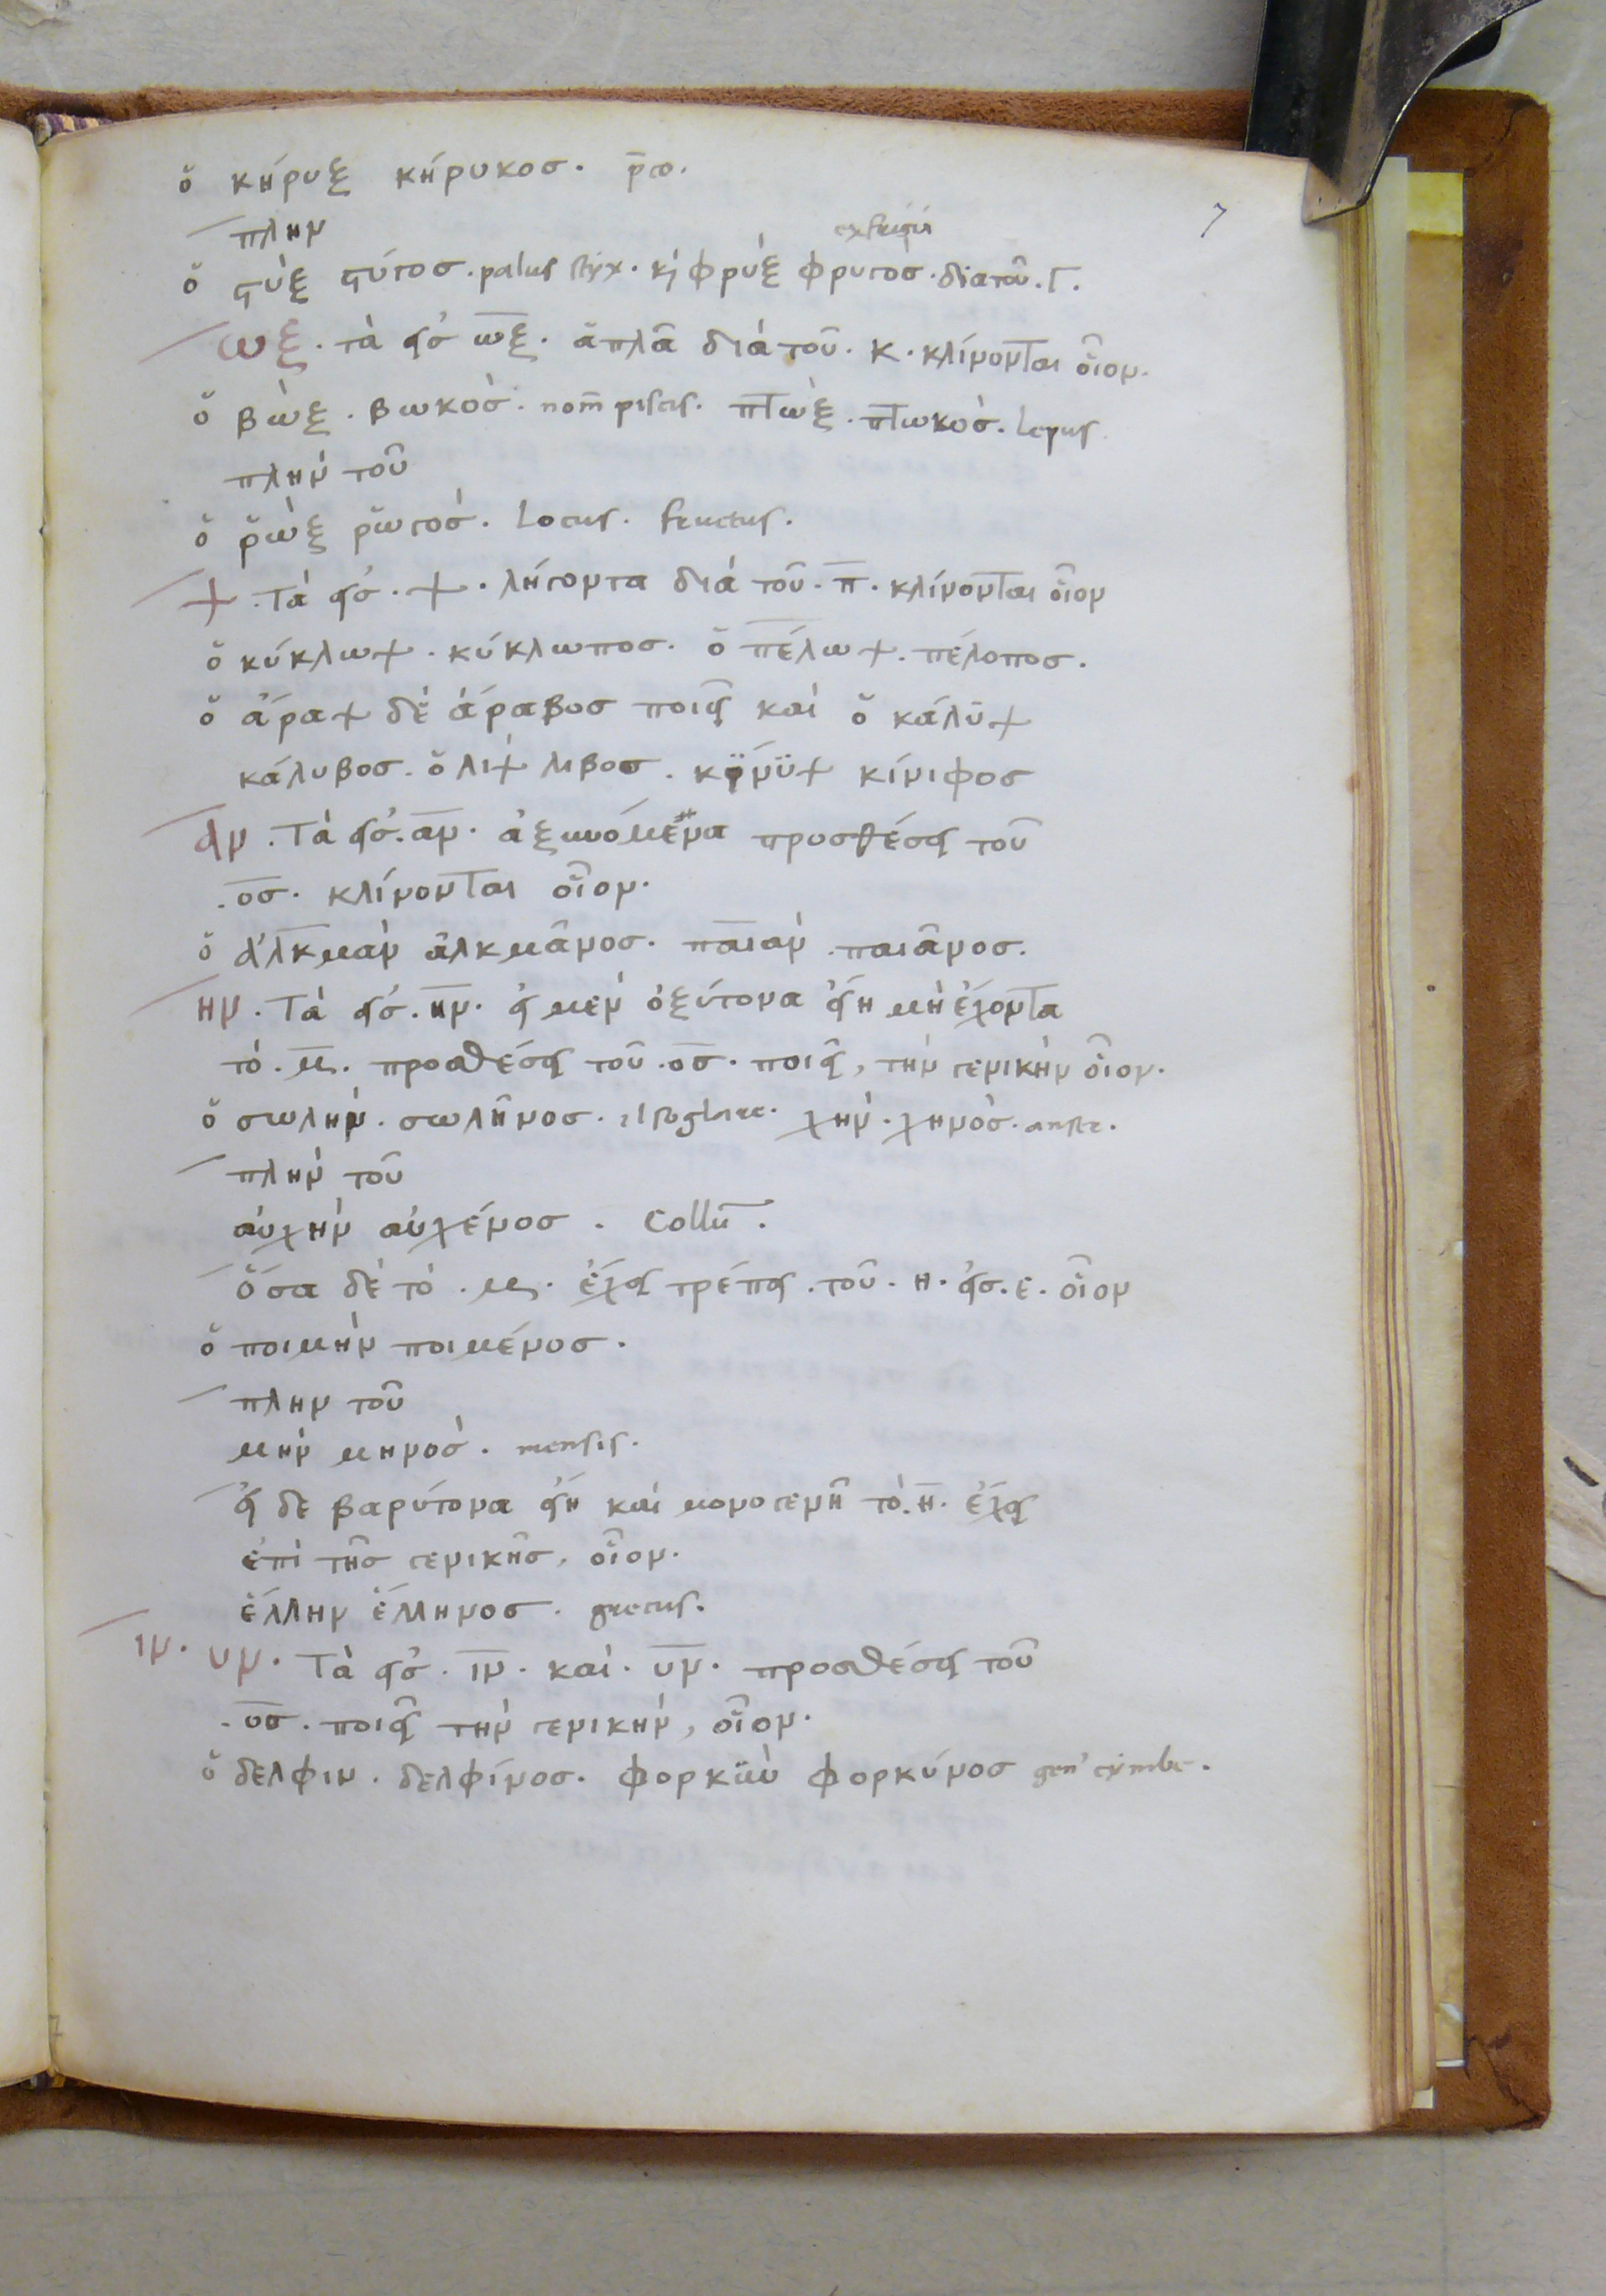 ὁ κήρυξ κήρυκοσ.
7
πλην
ὁ στὺξ στύγοσ. palus styx. κὶ φρὺξ φρυγὸσ. διατοῦ. Γ.
ωξ. τὰ εἰσ ωξ. ἁπλᾶ διὰ τοῦ. κ. κλίνονται οἷον.
ὁ βὼξ. βωκὸσ. nom̄ piscis. πτὼξ. πτωκὸσ. Lepus
πλὴν τοῦ
ὁ ῥὼξ ῥωγὸσ. Locus. fructus.
ψ. τὰ εἰσ. ψ. λήγοντα διὰ τοῦ. π. κλίνονται οἷον
ὁ κύκλωψ. κύκλωποσ. ὁ πέλωψ. πέλοποσ.
ὁ ἄραψ δὲ ἄραβοσ ποιεῖ καὶ ὁ κάλυψ
κάλυβοσ. ὁ λιψ λιβοσ. κΰνϋψ κίνιφοσ
αν. Τὰ εἰσ. αν. προσθέσει τοῦ
.οσ. κλίνονται οἷον.
ὁ ἀλκμὰν ἀλκμᾶνοσ. παιὰν. παιᾶνοσ.
ην. Τὰ εἰσ. ην. εἰ μὲν ὀξύτονα εἴη μὴ ἔχοντα
τὸ. μ. προσθέσει τοῦ. οσ. ποιεῖ, τὴν γενικὴν οἷον.
ὁ σωλὴν. σωλῆνοσ. χὴν. χηνὸσ. anser.
πλὴν τοῦ
αὐχὴν αὐχένοσ. Collū.
ὅσα δὲ τὸ. μ. ἔχει τρέπει. τοῦ. η. εἰσ. ε. οἷον
ὁ ποιμὴν ποιμένοσ.
πλην τοῦ
μὴν μηνὸσ. mensis.
εἰ δε βαρύτονα εἴη καὶ μονογενῆ τὸ. η. ἔχει
ἐπὶ τῆσ γενικῆσ, οἷον.
ἕλλην ἕλληνοσ. grecus.
ιν. υν. Τὰ εἰσ. ιν. καὶ. υν. προσθέσει τοῦ
.οσ. ποιεῖ τὴν γενικὴν, οἷον.
ὁ δελφιν. δελφίνοσ. φορκϋν φορκύνοσ gen' cymbe.